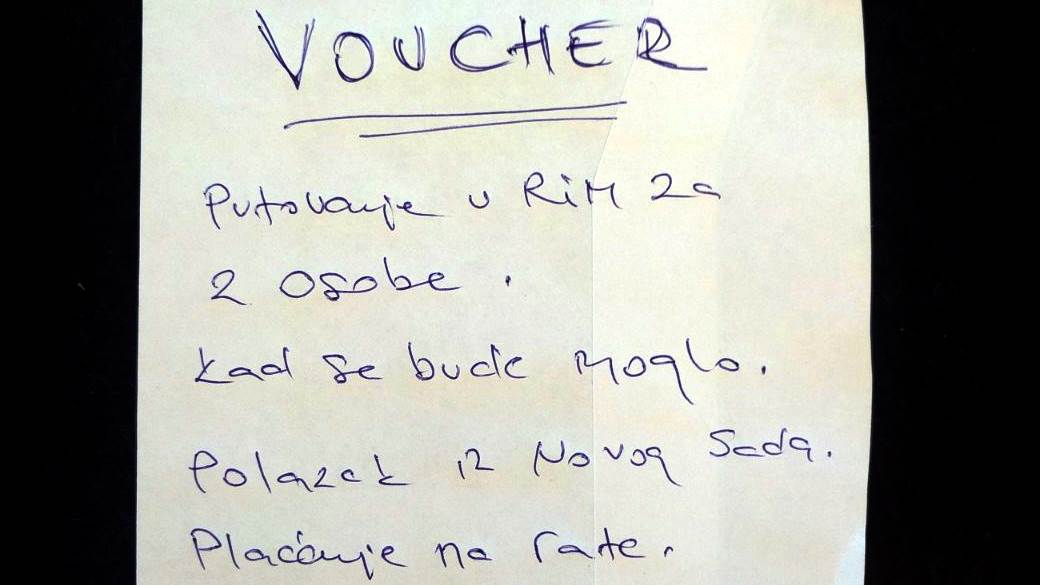 VOUCHER
Putovanje u RiM za
2 osobe.
kad se bude moglo.
Polazak iz Novog Sada.
Plaćanje na rate.